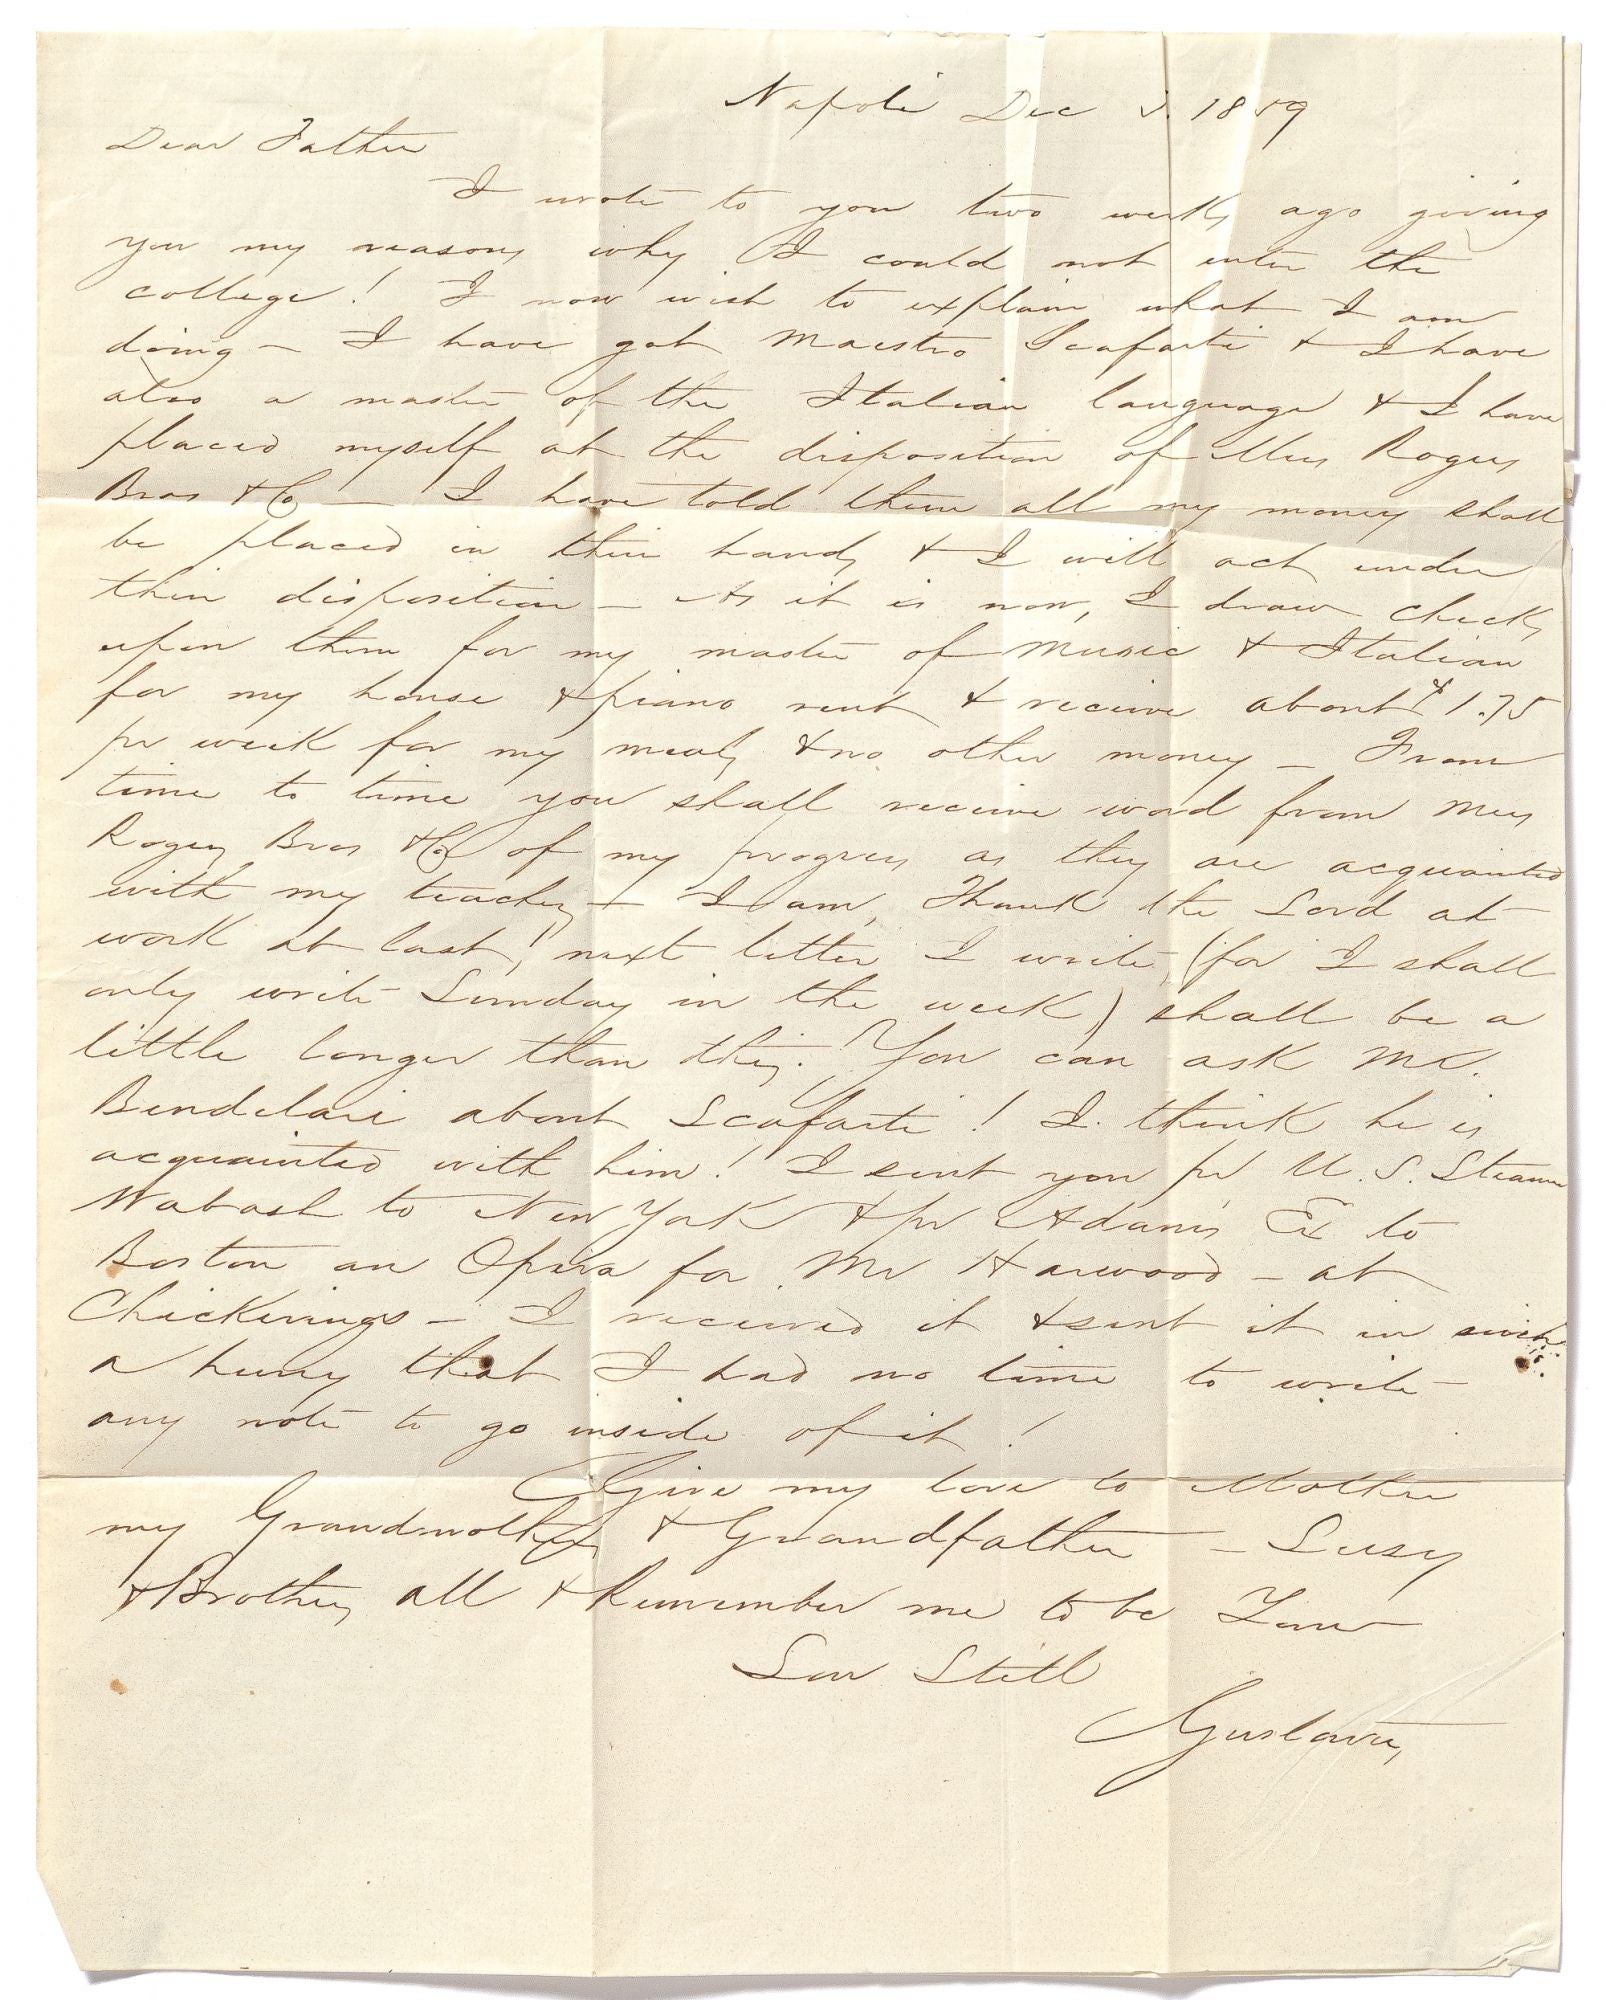 Napoli Dec 5. 1859
Dear Father
I wrote to you two weeks ago giving
you my reasons why I could not enter the
college! I now wish to explain what I am
doing — I have got Maestro Scafarti & I have
also a master of the Italian language & I have
placed myself at the disposition of Mess Rogers
Bros & Co — I have told them all my money shall
be placed in their hands & I will act under
their disposition — As it is now, I draw checks
upon them for my master of Music & Italian
for my house & piano rent & receive about $1.75
pr week for my meals & no other money — From
time to time you shall receive word from Mess
Rogers Bros & Co of my progress as they are acquainted
with my teachers — I am, Thank the Lord at
work at last! next letter I write, (for I shall
only write Sunday in the week) shall be a
little longer than this. You can ask Mr.
Bendelari about Scafarti! I think he is
acquainted with him! I sent you pr U. S. Steam
Wabash to New York & pr Adams Ex to
Boston an Opera for Mr Harwood — at
Chickerings — I received it & sent it in such
a hurry that I had no time to write
any note to go inside of it!
Give my love to Mother
my Grandmother & Grandfather — Susy
& Brothers all & Remember me to be Your
Son Still
Gustavus